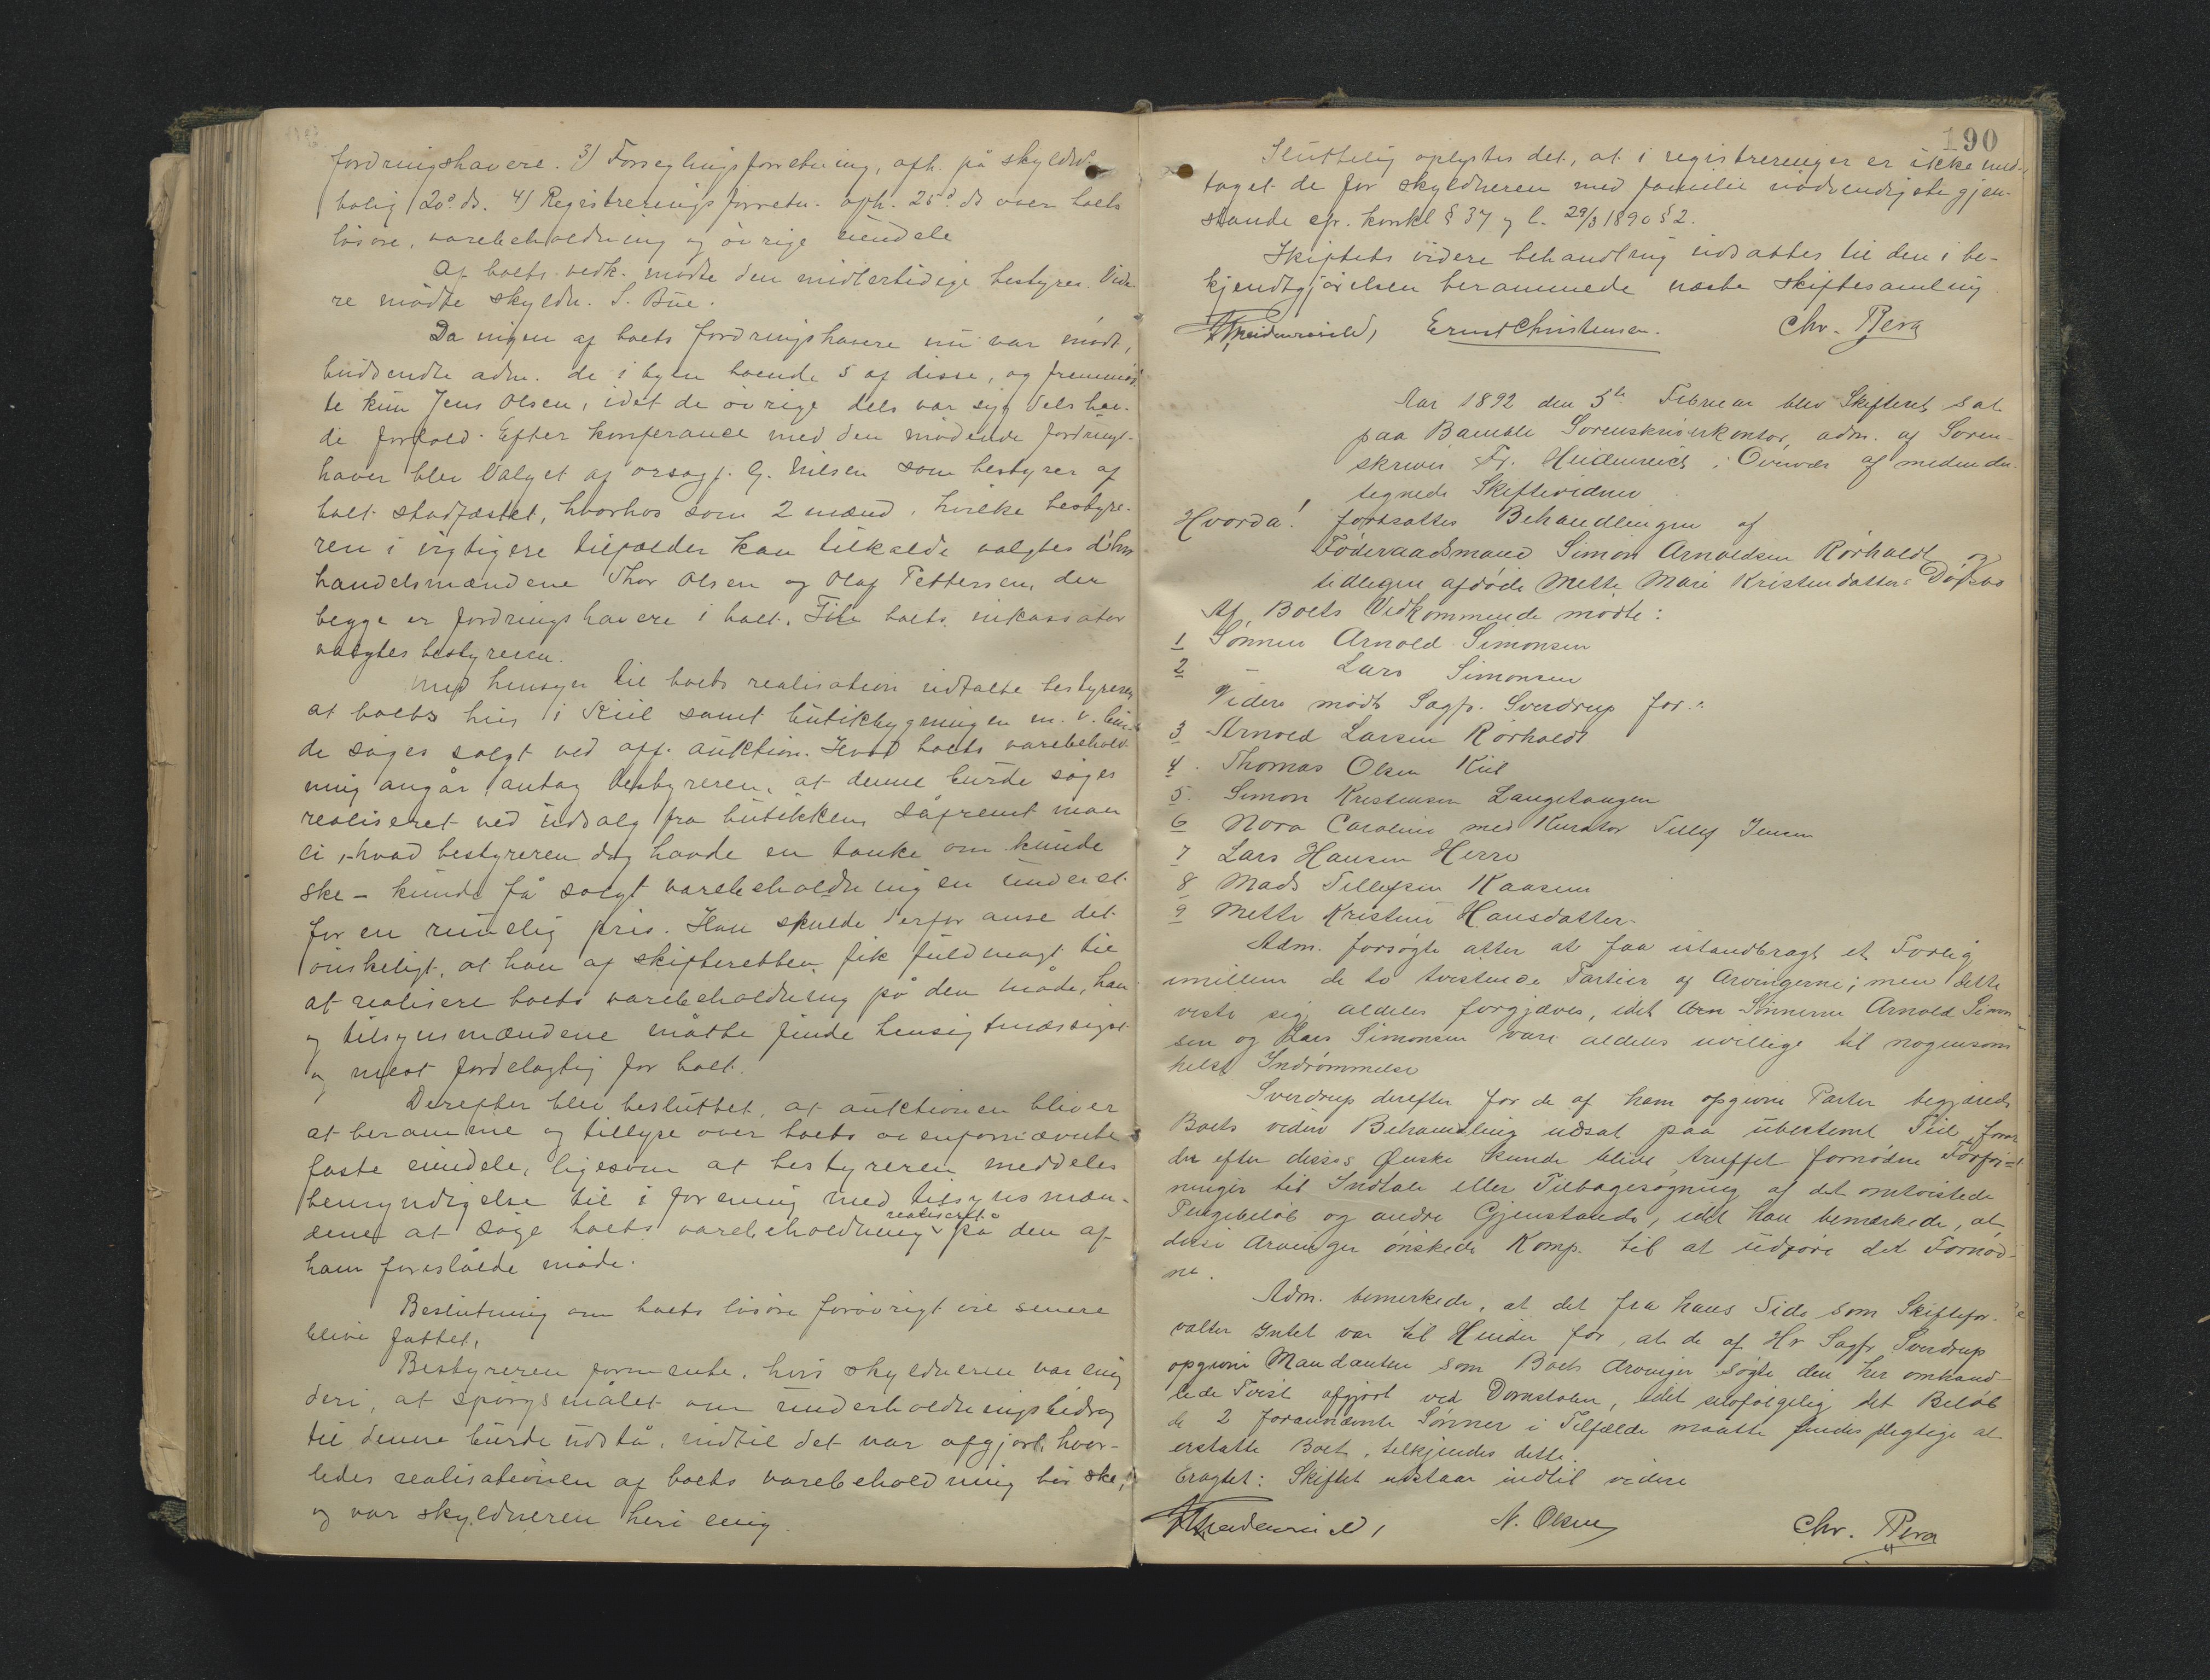 fordringshavere. 3) Forseglingsforretning, afh. på skyldns
bolig 20de ds. 4) Registreringsforretn. afh. 25d. ds over boets
løsøre, varebeholdning og øvrige eiendele
Af boets vedk. mødte den midlertidige bestyrer. Vide-
re mødte skyldn. S. Bue.
Da ingen af boets fordringshavere nu var mødt,
budsendte adm. de i byen boende 5 af disse, og fremmød-
te kun Jens Olsen, idet de øvrige dels var syg dels hav-
de forfald. Efter konferance med den mødende fordrings-
haver blev Valget af orsagf. G. Nilsen som bestyrer af
boet stadfæstet, hvorhos som 2 mænd, hvilke bestyre-
ren i vigtigere tilfælder kan tilkalde valgtes d'hrr
handelsmændene Thor Olsen og Olaf Pettersen, der
begge er fordringshavere i boet. Til boets inkassator
valgtes bestyreren.
Med hensyn til boets realisation udtalte bestyreren
at boets hus i Kiil samt butikbygningen m. v. bur-
de søges solgt ved off. auktion. Hvad boets varebehold-
ning angår antog bestyreren, at denne burde søges
realiseret ved udsalg fra butikken såfremt man
ei, hvad bestyreren dog havde en tanke om kunde
ske – kunde få solgt varebeholdningen underet
for en rimelig pris. Han skulde derfor anse det
ønskeligt, at han af skifteretten fik fuldmagt til
at realisere boets varebeholdning på den måde, han
og tilsynsmændene måtte finde hensigtmæssigst
og mest fordelagtig for boet.
Derefter blev besluttet, at auktionen bliver
at beramme og tillyse over boets ovenfornævnte
faste eiendele, ligesom at bestyreren meddeles
bemyndigelse til i forening med tilsynsmæn-
dene at søge boets varebeholdning realiseret på den af
ham foreslåede måde.
Beslutning om boets løsøre forøvrigt vil senere
blive fattet.
Bestyreren formente, hvis skyldneren var enig
deri, at spørgsmålet om underholdningsbidrag
til denne burde udstå, indtil det var afgjort, hvor-
ledes realisationen af boets varebeholdning bør ske,
og var skyldneren heri enig.
190
Sluttelig oplystes det, at i registreringer er ikke med-
taget de for skyldneren med familie nødvendigste gjen-
stande cfr. konkl § 37 og l. 29/3 1890 § 2.
Skiftets videre behandling udsattes til den i be-
kjendtgjørelsen berammede næste skiftesamling
Fr Heidenreich, Ernst Christensen. Chr. Berg
Aar 1892 den 5te Februar blev Skifteret sat
paa Bamble Sorenskriverkontor, adm. af Soren-
skriver Fr. Heidenreich i Overvær af medunder-
tegnede Skiftevidner
Hvorda! fortsattes Behandlingen af
Føderaadsmand Simon Arnoldsen Rørholdt og
tidligere afdøde Mette Marie Kristensdatters Dødsbo
Af Boets Vedkommende mødte:
1 Sønnen Arnold Simonsen
2 – Lars Simonsen
Videre mødte Sagfr. Sverdrup for:
3 Arnold Larsen Rørholdt
4. Thomas Olsen Kiil
5. Simon Kristensen Langetangen
6 Nora Caroline med Kurator Tellef Jensen
7 Lars Hansen Herre
8 Mads Tellefsen Kaasene
9 Mette Kristine Hansdatter
Adm. forsøgte atter at faa istandbragt et Forlig
imellem de to tvistende Partier af Arvingerne; men dette
viste sig aldeles forgjæves, idet Arn Sønnerne Arnold Simon-
sen og Lars Simonsen vare aldeles uvillige til nogensom-
helst Indrømmelse
Sverdrup derefter for de af ham opgivne Parter begjærede
Boets videre Behandling udsat paa ubestemt Tid, for
der efter disses Ønske kunde blive truffet fornødne Forføi-
ninger til Indtale eller Tilbagesøgning af det omtvistede
Pengebeløb og andre Gjenstande, idet han bemærkede, at
disse Arvinger ønskede Komp. til at udføre det Fornød-
ne.
Adm. bemerkede, at det fra hans Side som Skiftefor-
valter Intet var til Hinder for, at de af Hr Sagfr Sverdrup
opgivne Mandanter som Boets Arvinger søgte den her omhand-
lede Tvist afgjort ved Domstolen, idet selvfølgelig det Beløb
de 2 forannævnte Sønner i Tilfælde maatte findes pligtige at
erstatte Boet, tilkjendes dette.
Eragtet: Skiftet udstaar indtil videre
Fr Heidenreich, N. Olsen Chr. Berg